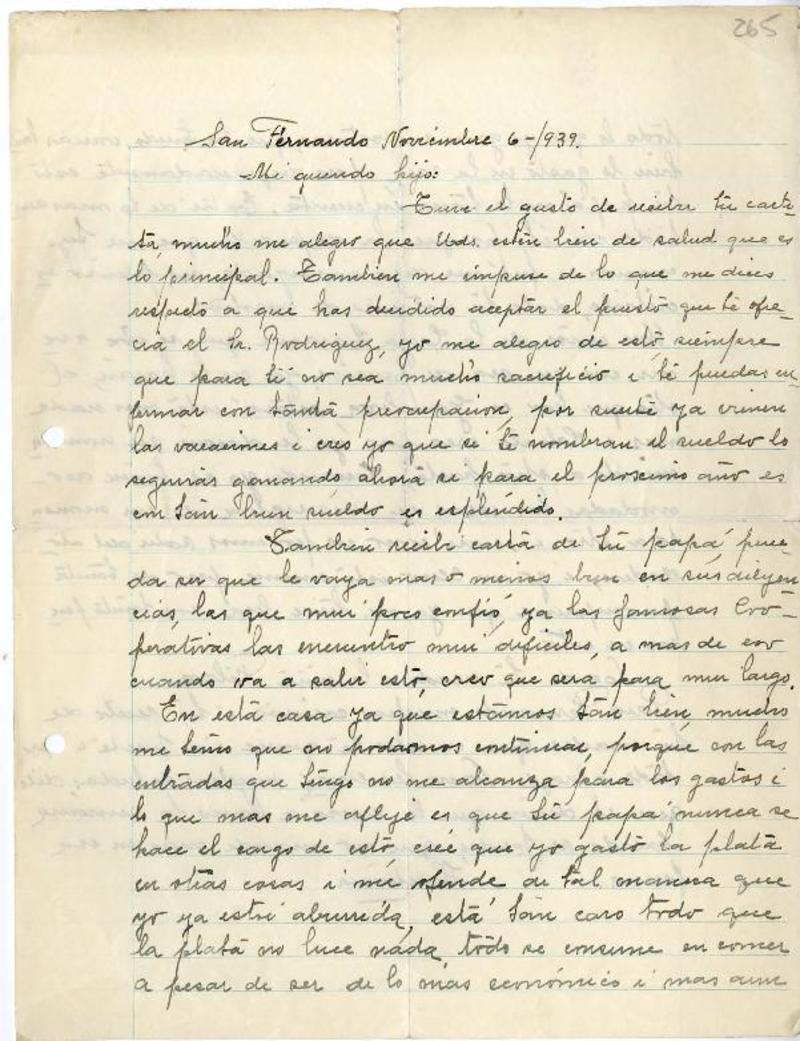 265
San Fernando Noviembre 6-/939.
Mi querido hijo:
Tuve el gusto de recibir tú carti-
ta, mucho me alegro que Uds. estén bien de salud que es
lo principal. Tambien me impuse de lo que me dices
respecto a que has decidido aceptar el puesto que te ofre-
cia el Sr. Rodriguez, yo me alegro de esto, siempre
que para ti no sea mucho sacrificio i te puedas en-
fermar con tanta preocupacion, por suerte ya vienen
las vacaciones i creo yo que si te nombran el sueldo lo
seguirás ganando, ahora si para el procsimo año es
con tan buen sueldo es espléndido.
Tambien recibi carta de tú papá, pue-
da ser que le vaya mas o menos bien en sus diligen
cias, las que mui poco confio, ya las famosas Coo-
perativas las encuentro mui dificiles, a mas de eso
cuando va a salir esto, creo que sera para mui largo.
En esta casa ya que estámos tan bien, mucho
me temo que no podamos continuar, porque con las
entradas que tengo no me alcanza para los gastos i
lo que mas me aflije es que tú papá nunca se
hace el cargo de esto, creé que yo gasto la plata
en otras cosas i me ofende de tal manera que
yo ya estoi aburrida, está tan caro todo que
la plata no luce nada, todo se consume en comer
a pesar de ser de lo mas económico i mas aun